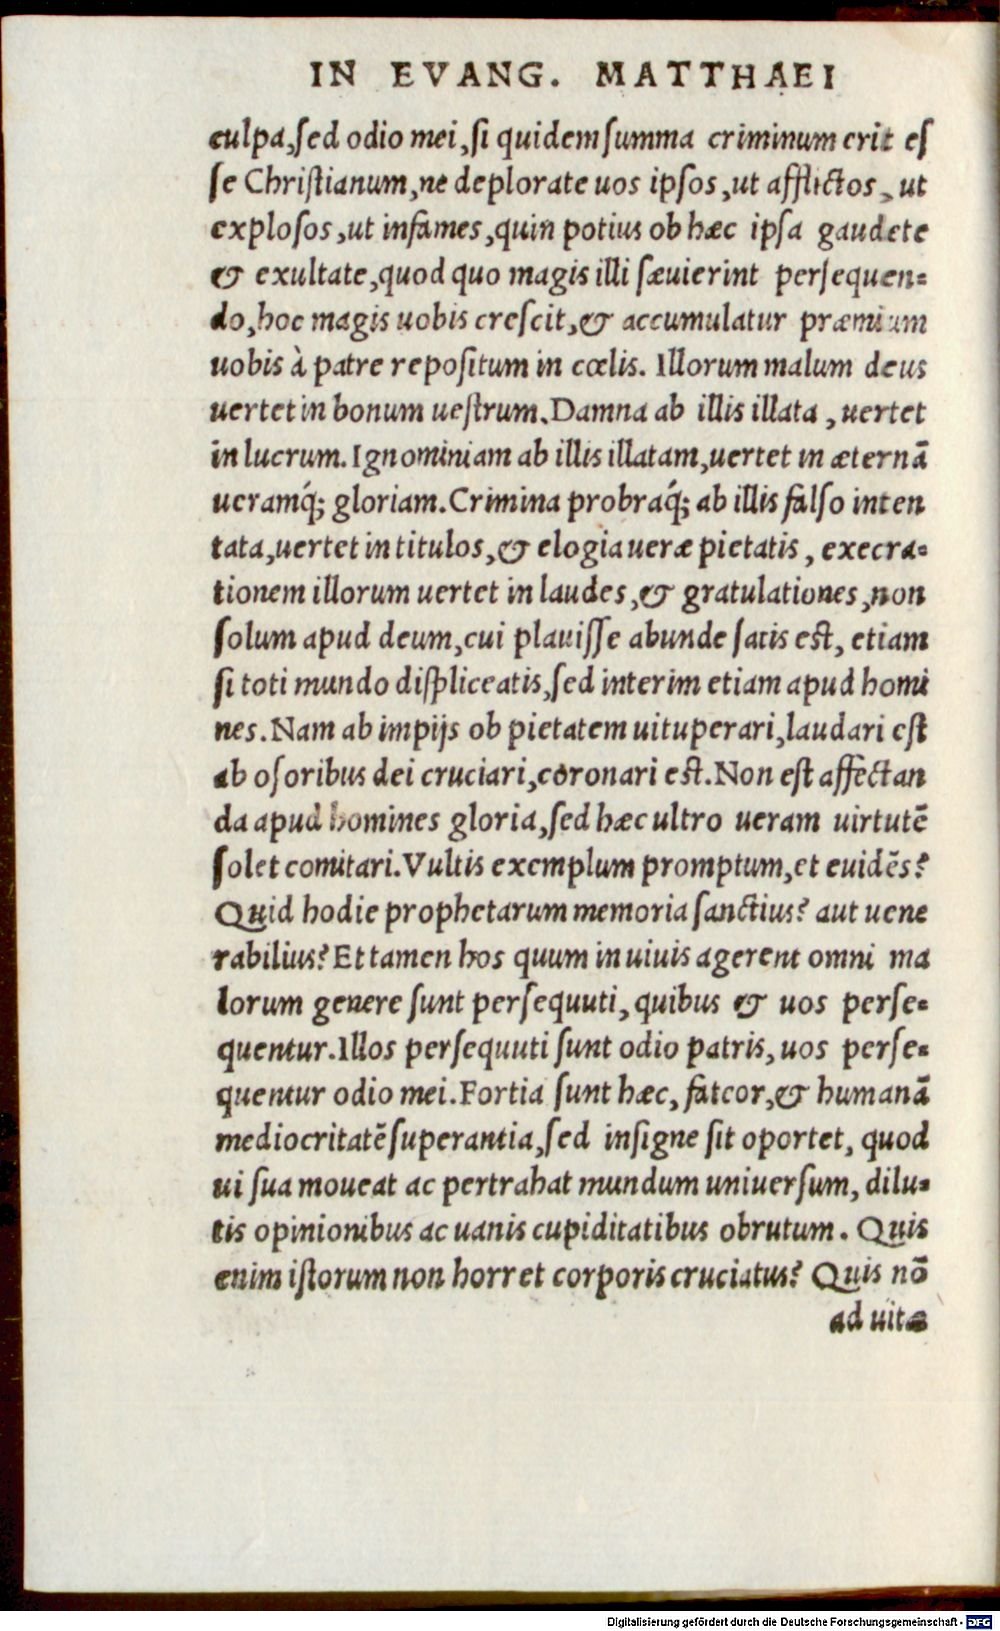 IN EVANG. MATTHAEI
culpa,sed odio mei,si quidem summa criminum erit es
se Christianum,ne deplorate uos ipsos,ut afflictos, ut
explosos,ut infames,quin potius ob hæc ipsa gaudete
& exultate,quod quo magis illi sæuierint persequen=
do,hoc magis uobis crescit,& accumulatur præmium
uobis à patre repositum in cœlis. Illorum malum deus
uertet in bonum uestrum.Damna ab illis illata, uertet
in lucrum.Ignominiam ab illis illatam,uertet in æternā
ueramq́; gloriam.Crimina probraq́; ab illis falso inten
tata,uertet in titulos,& elogia ueræ pietatis, execra=
tionem illorum uertet in laudes,& gratulationes,non
solum apud deum,cui placuisse abunde satis est, etiam
si toti mundo displiceatis,sed interim etiam apud homi
nes.Nam ab impijs ob pietatem uituperari,laudari est
ab osoribus dei cruciari,coronari est.Non est affectan
da apud homines gloria,sed hæc ultro ueram uirtutē
solet comitari.Vultis exemplum promptum,et euidēs?
Quid hodie prophetarum memoria sanctius? aut uene
rabilius? Et tamen hos quum in uiuis agerent omni ma
lorum genere sunt persequuti, quibus & uos perse=
quentur.Illos persequuti sunt odio patris, uos perse=
quentur odio mei.Fortia sunt hæc, fateor,& humanā
mediocritatē superantia,sed insigne sit oportet, quod
ui sua moueat ac pertrahat mundum uniuersum, dilu=
tis opinionibus ac uanis cupiditatibus obrutum. Quis
enim istorum non horret corporis cruciatus? Quis nō
ad uitæ
Digitalisierung gefördert durch die Deutsche Forschungsgemeinschaft - DFG